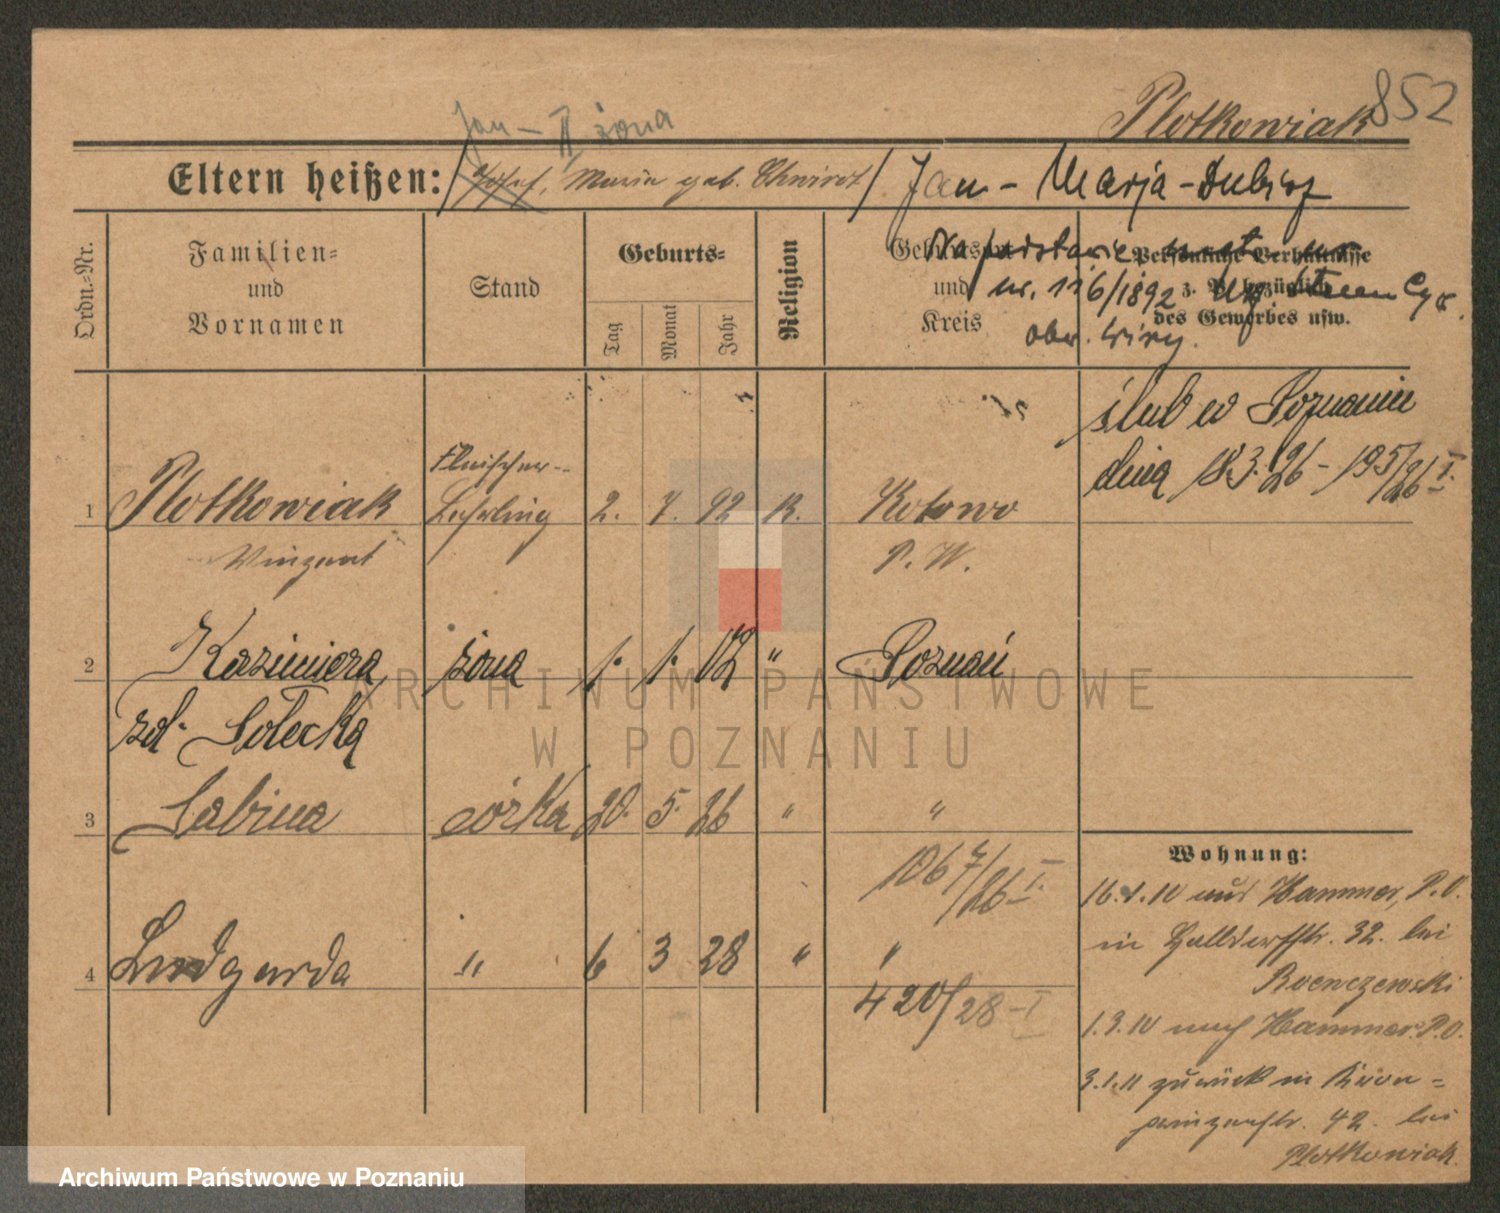 852
Plotkowiak
Jan - II żona
Eltern heißen: Josef, Maria geb. / Jan - Marja -
Ordn.-Nr.
Familien=
und
Vornamen
Stand
Geburts=
Tag
Monat
Jahr
Religion
Geburtsort
und
Kreis
Persönliche Verhältnisse
z. B. bezüglich
des Gewerbes usw.
Na podstawie
nr. 116/1892 Urz. Cyw.
obw. Wiry.
ślub w Poznaniu
dnia 18.3.26 - 195/26 I.
1 Plotkowiak Fleischer-
Lehrling 2. 7. 92 K. Kotowo
Vinzent P. W.
2 Kazimiera żona 1. 1. 02 " Poznań
zd. Sołecka
3 Sabina córka 20. 5. 26 " "
1067/26 I.
4 Ludgarda " 6 3 28 " "
420/28 - I
Wohnung:
16.1.10 aus Hammer, P.O.
in Halldorfstr. 32. bei
1.3.10 nach Hammer P.O.
3.1.11 zurück in Kron=
prinzenstr. 42. bei
Plotkowiak.
ARCHIWUM PAŃSTWOWE
W POZNANIU
Archiwum Państwowe w Poznaniu